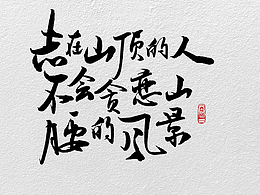 志在山顶的人
不会贪恋山
腰的风景